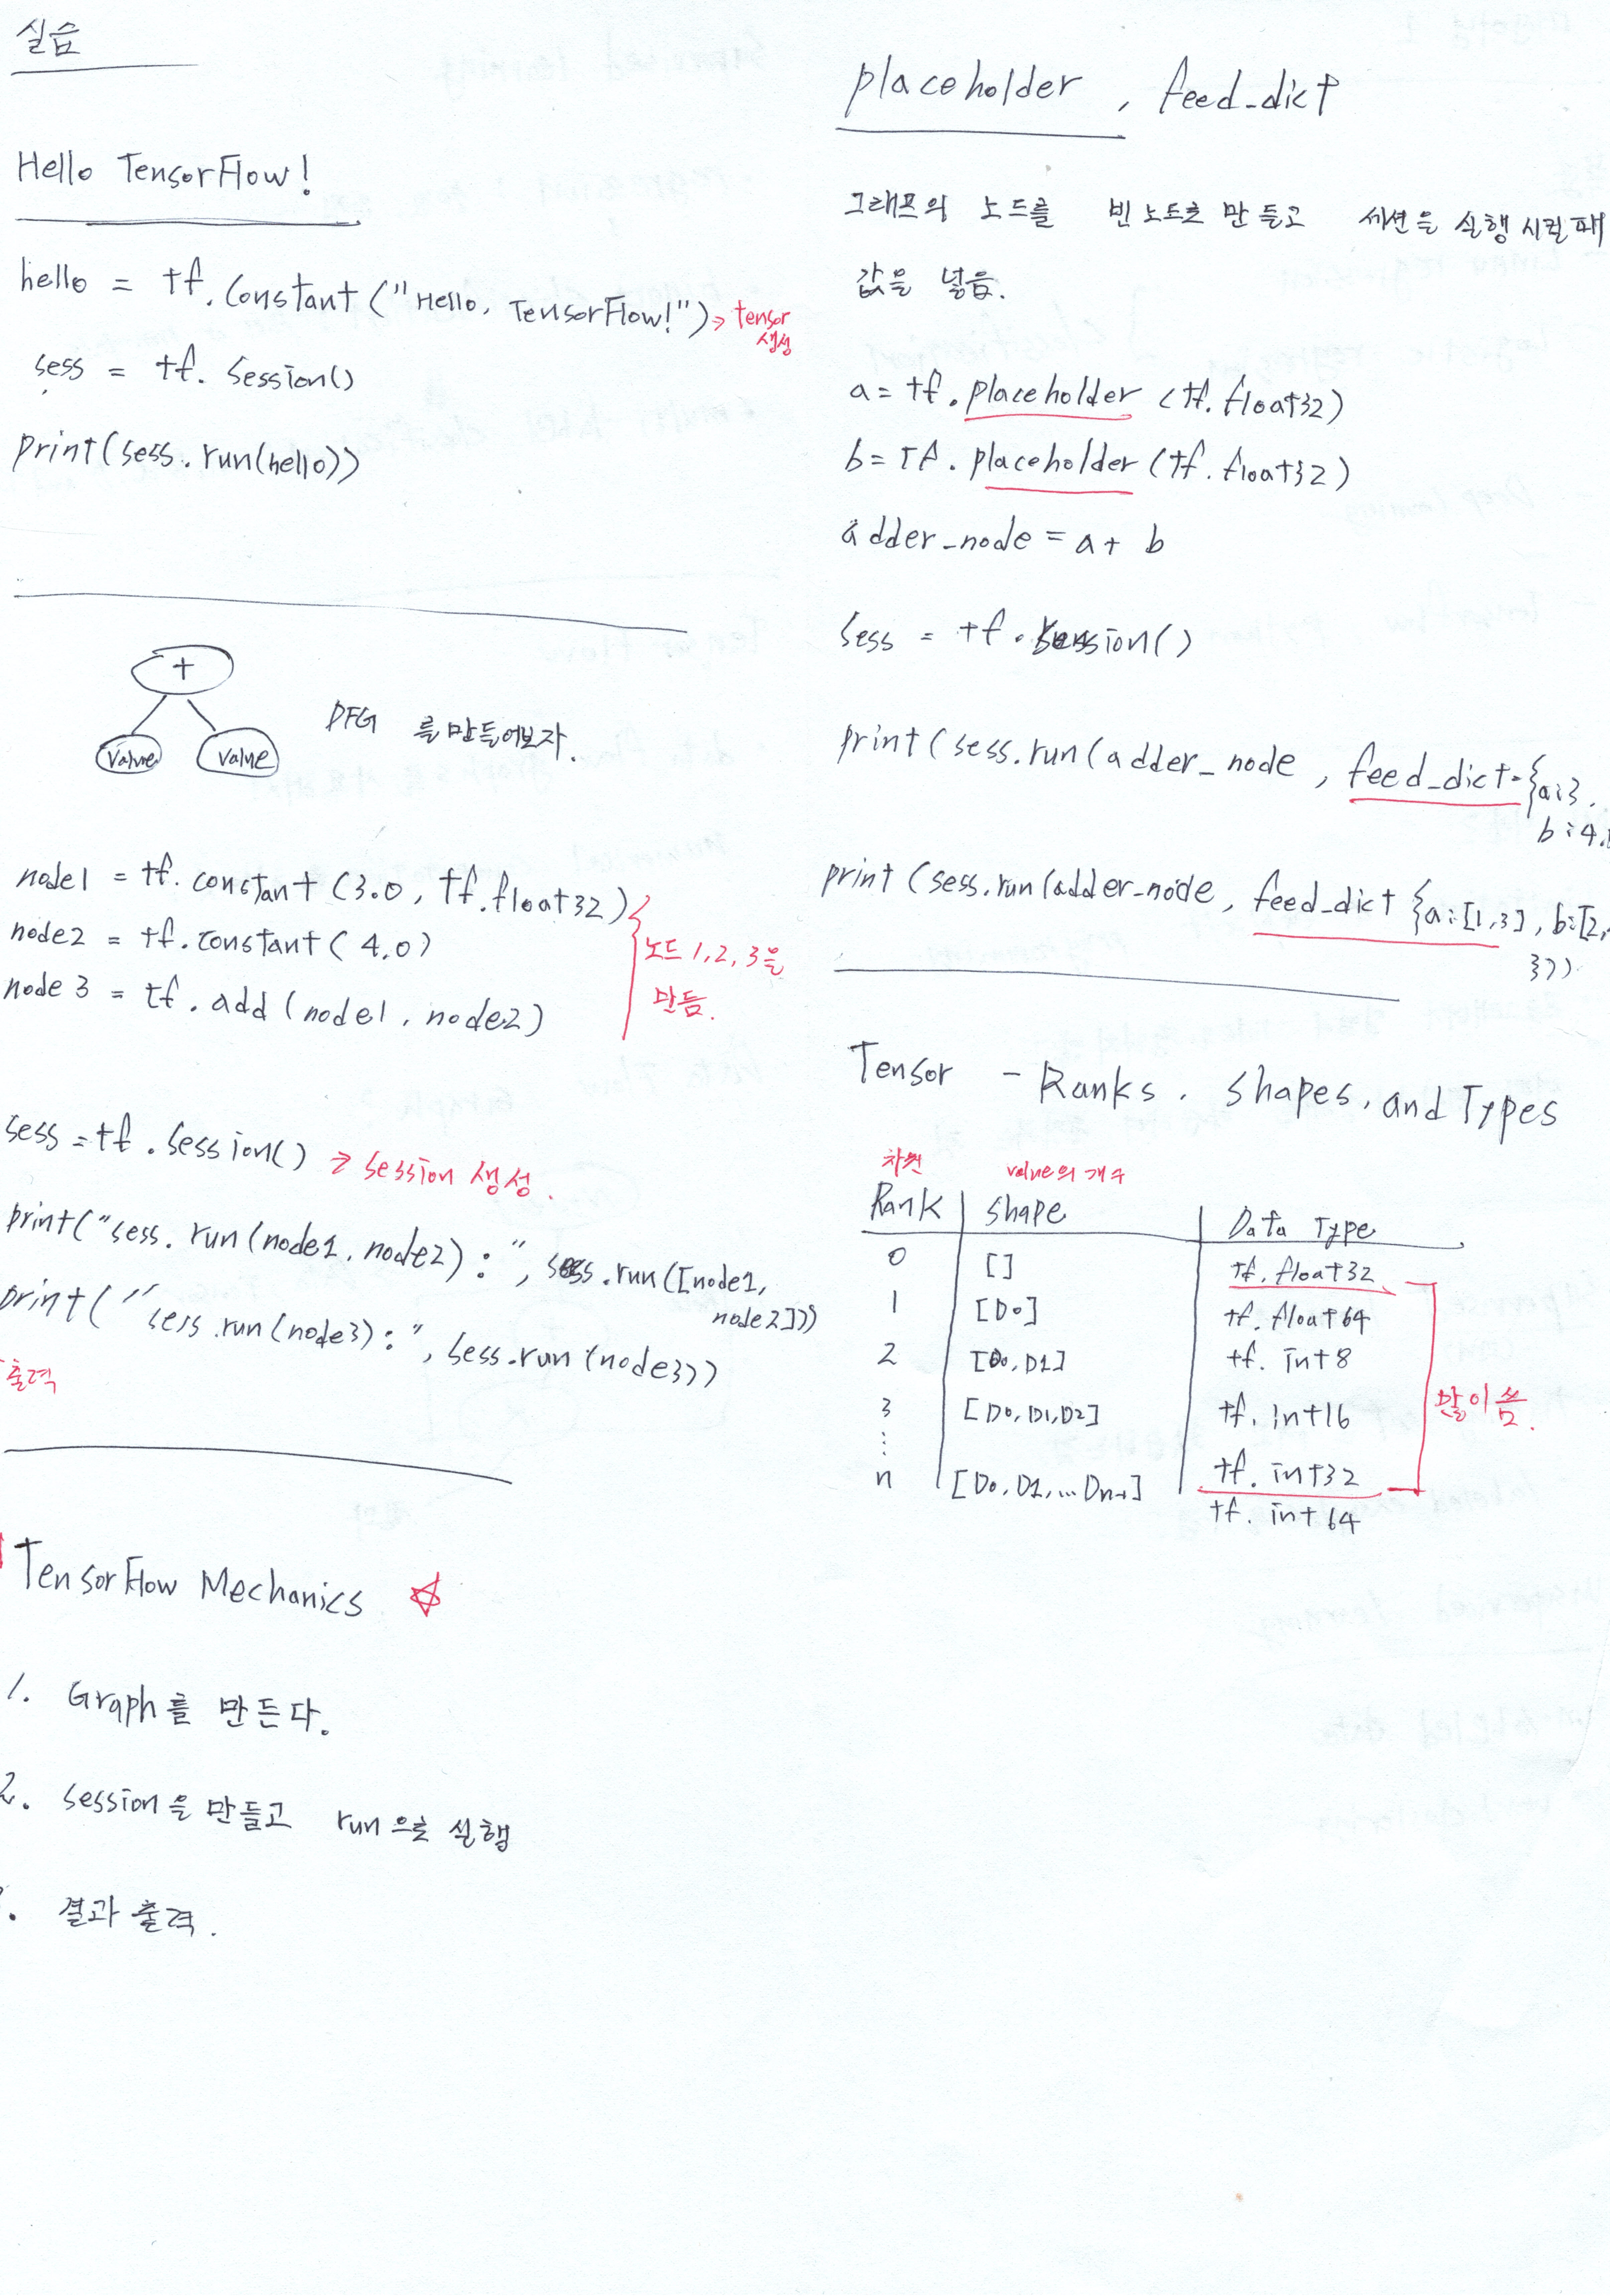 실습
Hello TensorFlow!
hello = tf.constant("Hello, TensorFlow!") → tensor
생성
sess = tf.Session()
print(sess.run(hello))
+
value value
DFG 를 만들어보자.
node1 = tf.constant(3.0, tf.float32)
node2 = tf.constant(4.0)
node3 = tf.add(node1, node2)
노드 1,2,3을
만듬.
sess = tf.Session() → session 생성.
print("sess.run(node1, node2):", sess.run([node1,
node2]))
print("sess.run(node3):", sess.run(node3))
출력
TensorFlow Mechanics ☆
1. Graph를 만든다.
2. session을 만들고 run으로 실행
. 결과 출력.
placeholder, feed_dict
그래프의 노드를 빈 노드로 만들고 세션을 실행시킬때
값을 넣음.
a = tf.placeholder(tf.float32)
b = tf.placeholder(tf.float32)
adder_node = a + b
sess = tf.Session()
print(sess.run(adder_node, feed_dict={a:3,
b:4.
print(sess.run(adder_node, feed_dict {a:[1,3], b:[2,
}))
Tensor - Ranks, Shapes, and Types
차원 value의 개수
Rank Shape Data Type
0 [] tf.float32
1 [D0] tf.float64
2 [D0, D1] tf.int8
3 [D0, D1, D2] tf.int16
⋮
n [D0, D1, ... Dn-1] tf.int32
tf.int64
많이 씀.